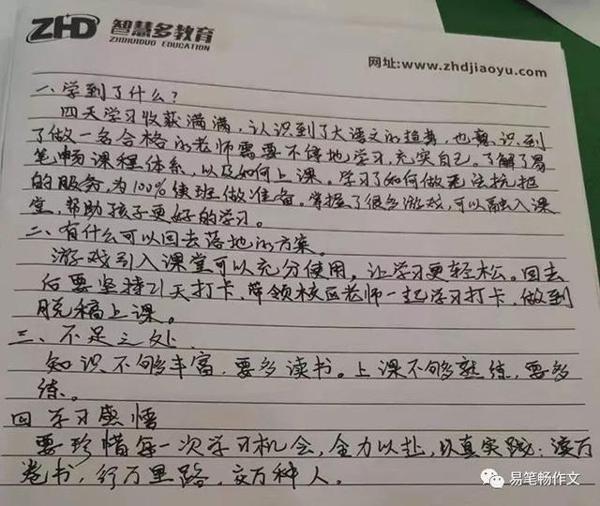 ZHD 智慧多教育
ZHIHUIDUO EDUCATION
网址:www.zhdjiaoyu.com
一、学到了什么?
四天学习收获满满,认识到了大语文的趋势,也意识到
了做一名合格的老师需要不停地学习,充实自己。了解了易
笔畅课程体系,以及如何上课。学习了如何做无法抗拒
的服务,为100%续班做准备。掌握了很多游戏,可以融入课
堂,帮助孩子更好的学习。
二、有什么可以回去落地的方案。
游戏引入课堂可以充分使用,让学习更轻松。回去
后要坚持21天打卡,带领校区老师一起学习打卡,做到
脱稿上课。
三、不足之处
知识不够丰富,要多读书。上课不够熟练,要多
练。
四 学习感悟
要珍惜每一次学习机会,全力以赴,认真实践:读万
卷书,行万里路,交万种人。
易笔畅作文